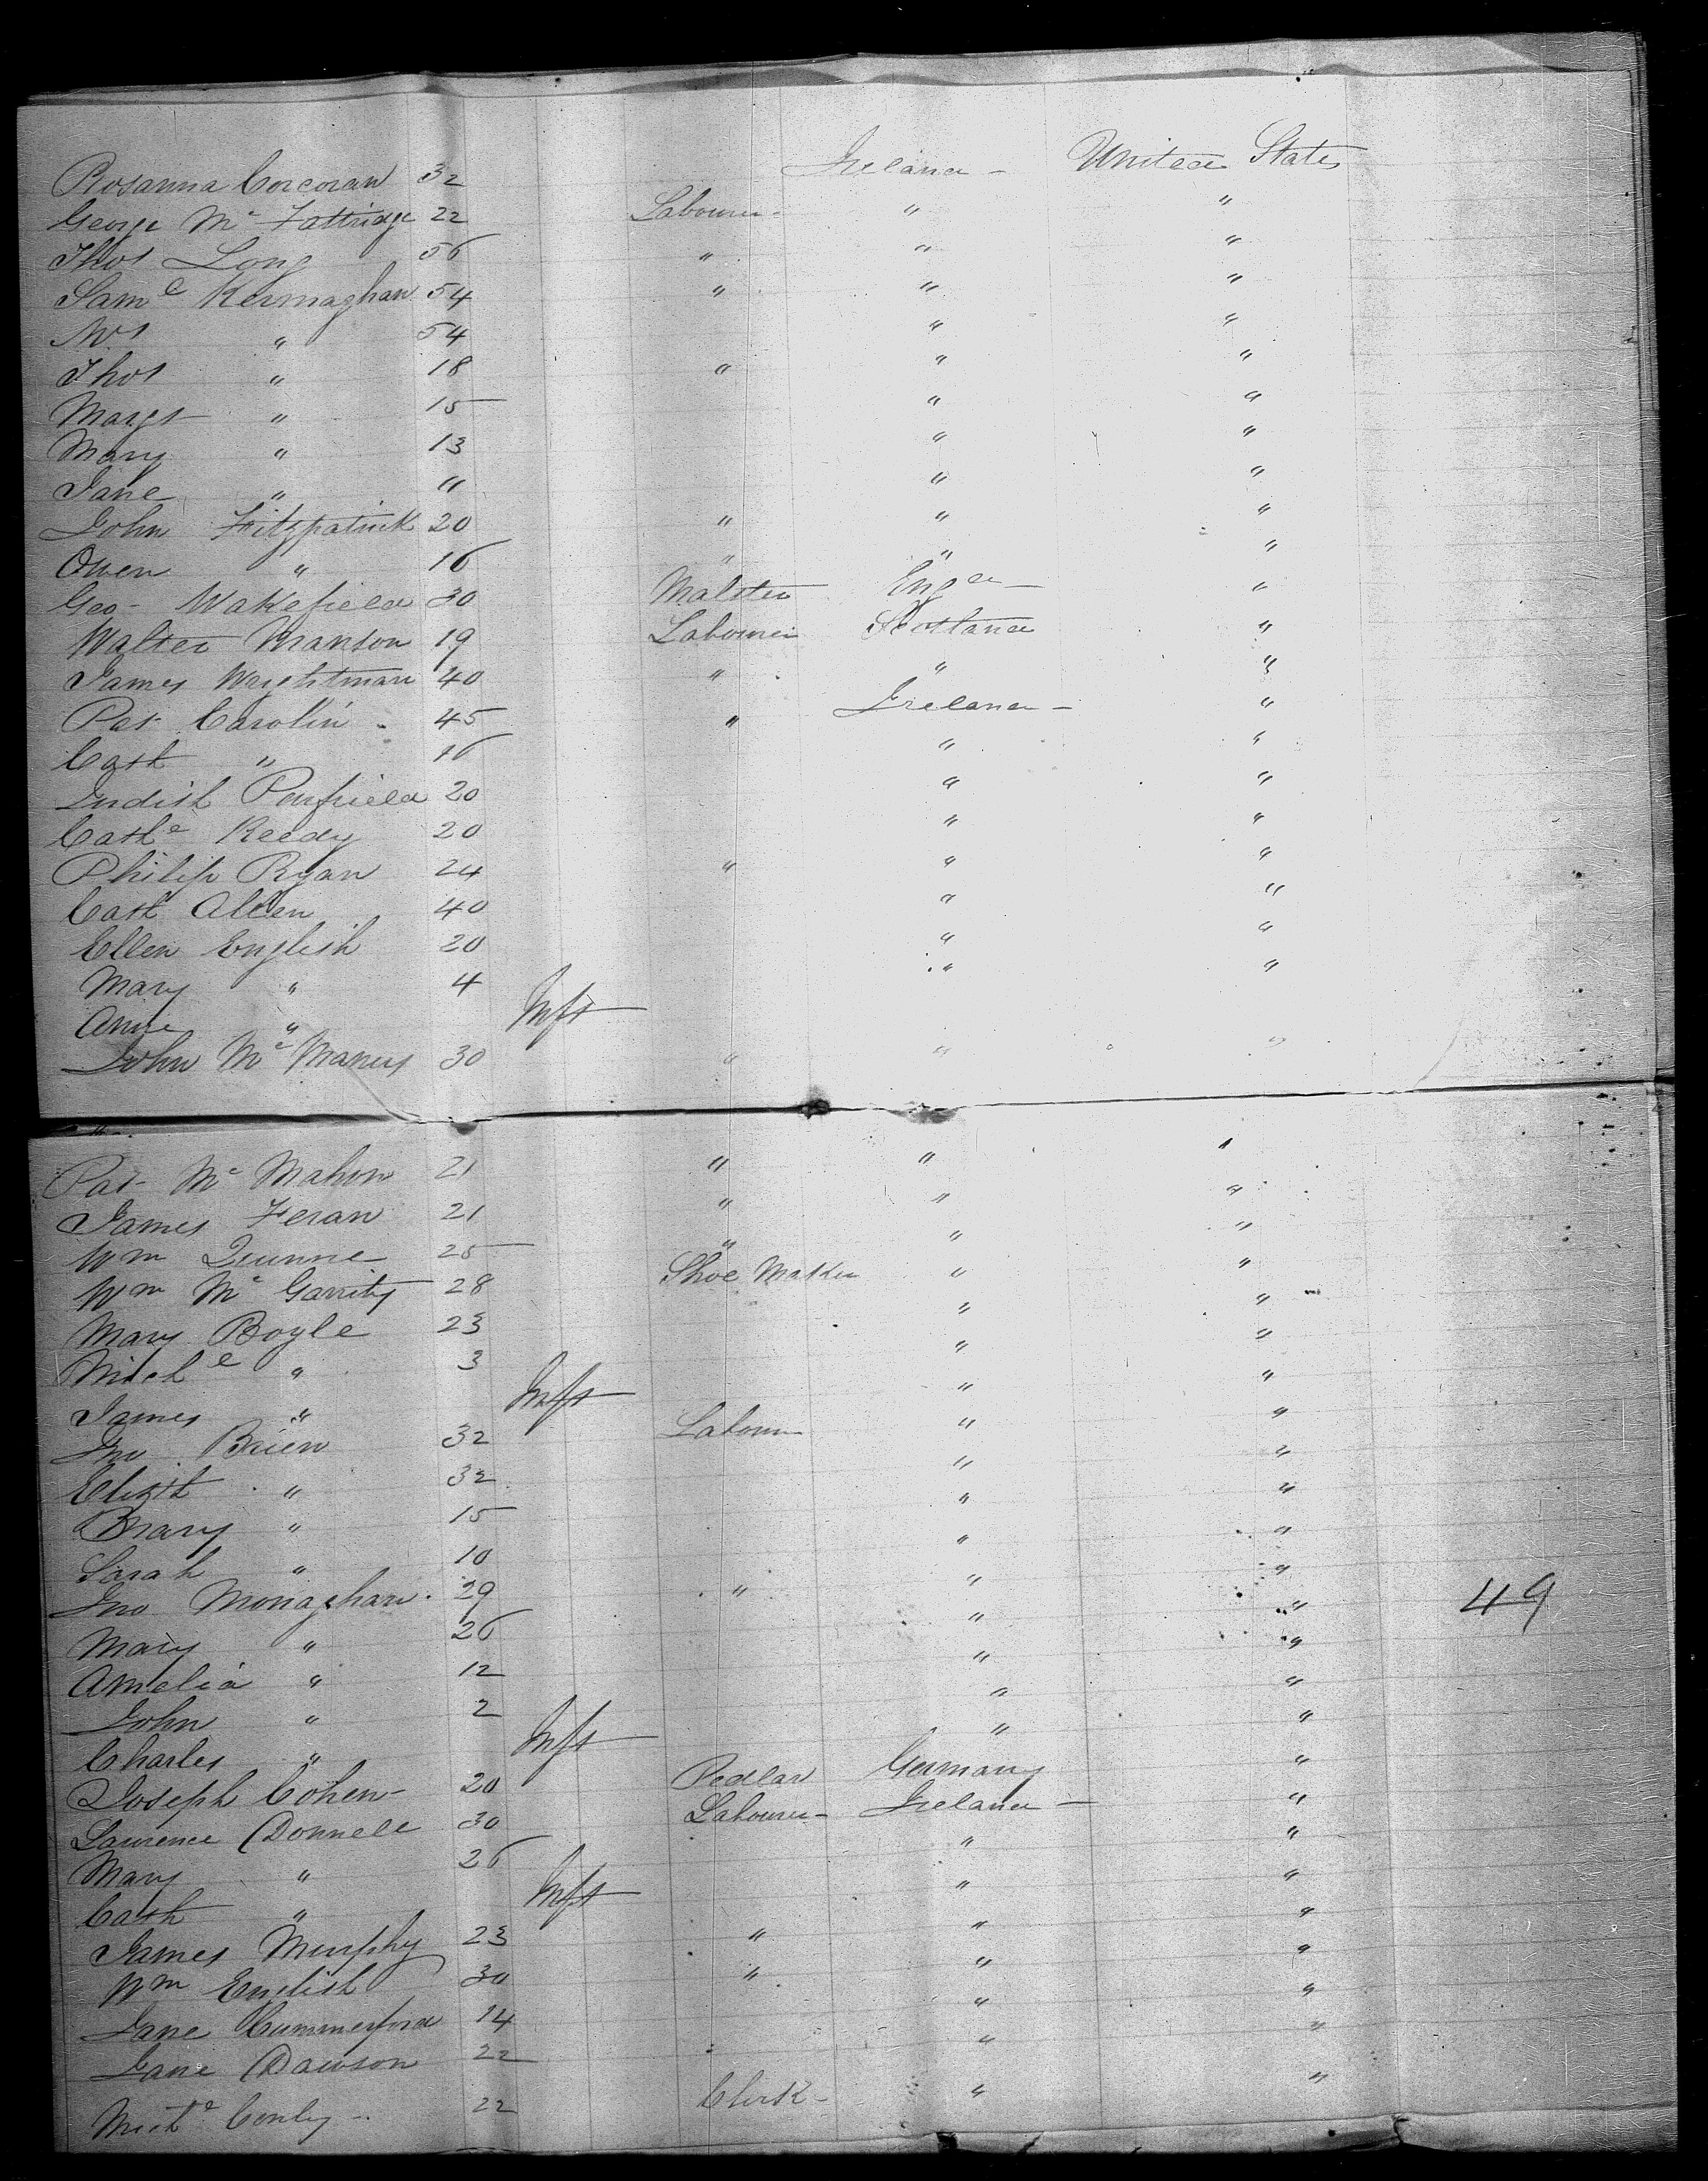 Rosanna Corcoran 32 Ireland - United States
George Mc Fattridge 22 Labourer " "
Thos Long 56 " " "
Saml Kernaghan 54 " " "
Mrs " 54 " "
Thos " 18 " " "
Margt " 15 " "
Mary " 13 " "
Jane " 11 " "
John Fitzpatrick 20 " " "
Owen " 16 " " "
Geo - Wakefield 30 Malster Engd - "
Walter Manson 19 Labourer Scotland "
James Wrightman 40 " " "
Pat Carolin 45 " Ireland - "
Cath " 16 " "
Judith Penfield 20 " "
Cathe Reedy 20 " "
Philip Ryan 24 " " "
Cath Allen 40 " "
Ellen English 20 " "
Mary " 4 " "
Anne " Inft
John Mc Manus 30 " " "
Pat Mc Mahon 21 " " "
James Feran 21 " " "
Wm Qunne 25 " " "
Wm Mc Garrity 28 Shoe Maker " "
Mary Boyle 23 " "
Michl " 3 " "
James " Inft " "
Jno Brien 32 Labour " "
Elizth " 32 " "
Mary " 15 " "
Sarah " 10 " "
Jno Monaghan 29 " " "
Mary " 26 " " 49
Amelia " 12 " "
John " 2 " "
Charles " Inft " "
Joseph Cohen 20 Pedlar Germany "
Laurence Donnell 30 Labourer - Ireland - "
Mary " 26 " "
Cath " Inft " "
James Murphy 23 " " "
Wm English 30 " " "
Jane Cummerford 14 " "
Jane Dawson 22 " "
Michl Conly 22 Clerk - " "